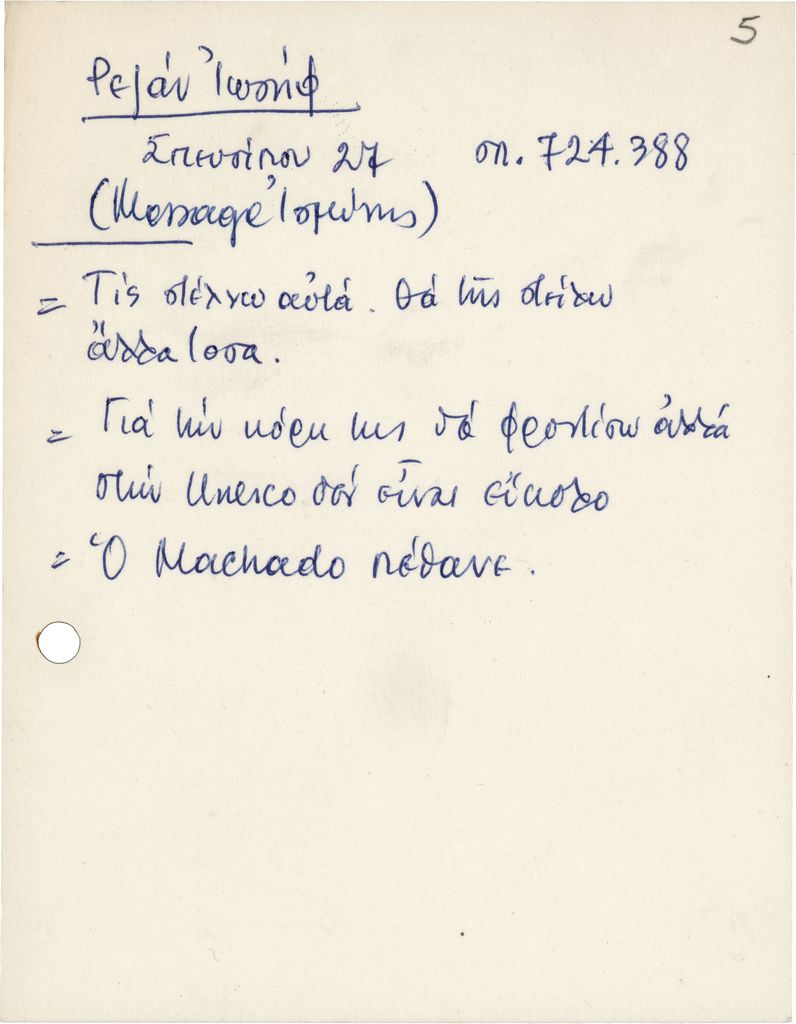 5
Ρεζάν Ἰωσήφ
Σπευσίπου 27 τηλ. 724.388
(Message Ἰσμήνης)
= Τῆς στέλνω αὐτά. Θά τῆς στείλω
ἄλλα τόσα.
= Γιά τήν κόρη της θά φροντίσω ἀλλά
στήν Unesco δέν εἶναι εὔκολο
= Ὁ Machado πέθανε.